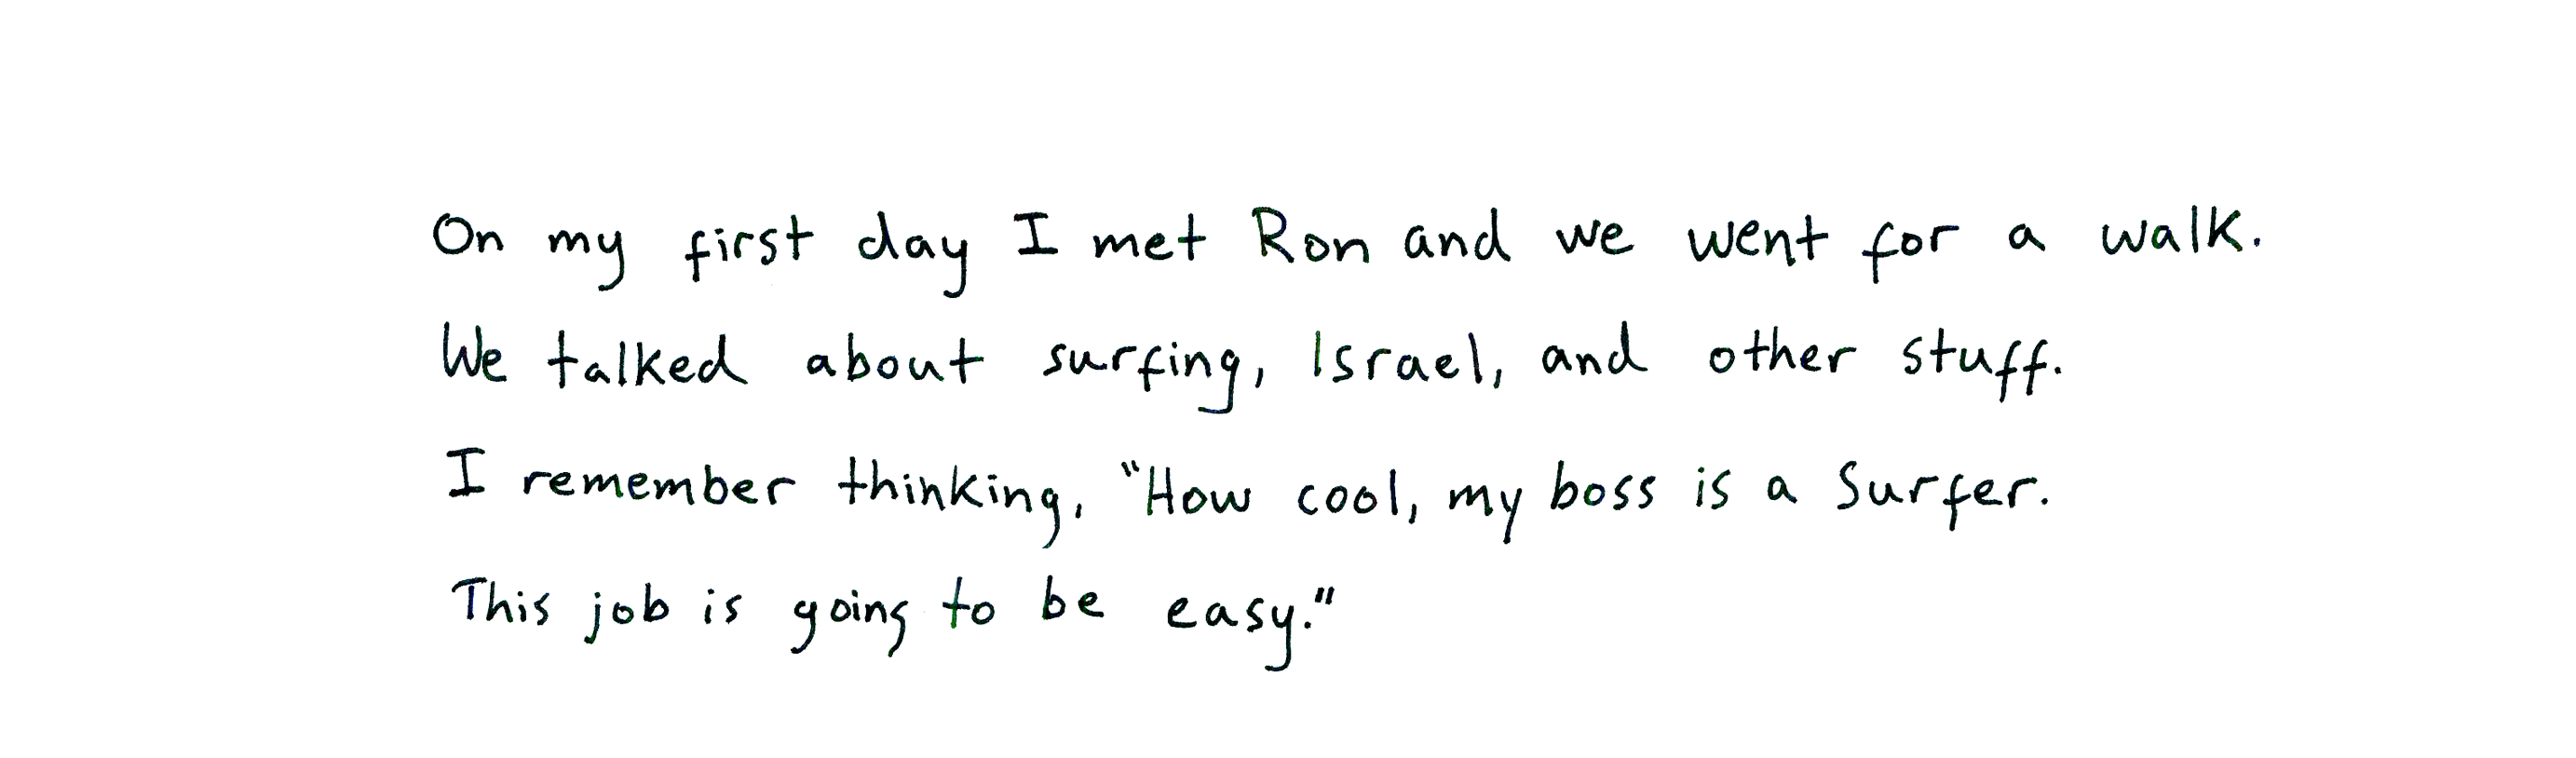 On my first day I met Ron and we went for a walk.
We talked about surfing, Israel, and other stuff.
I remember thinking, "How cool, my boss is a Surfer.
This job is going to be easy."